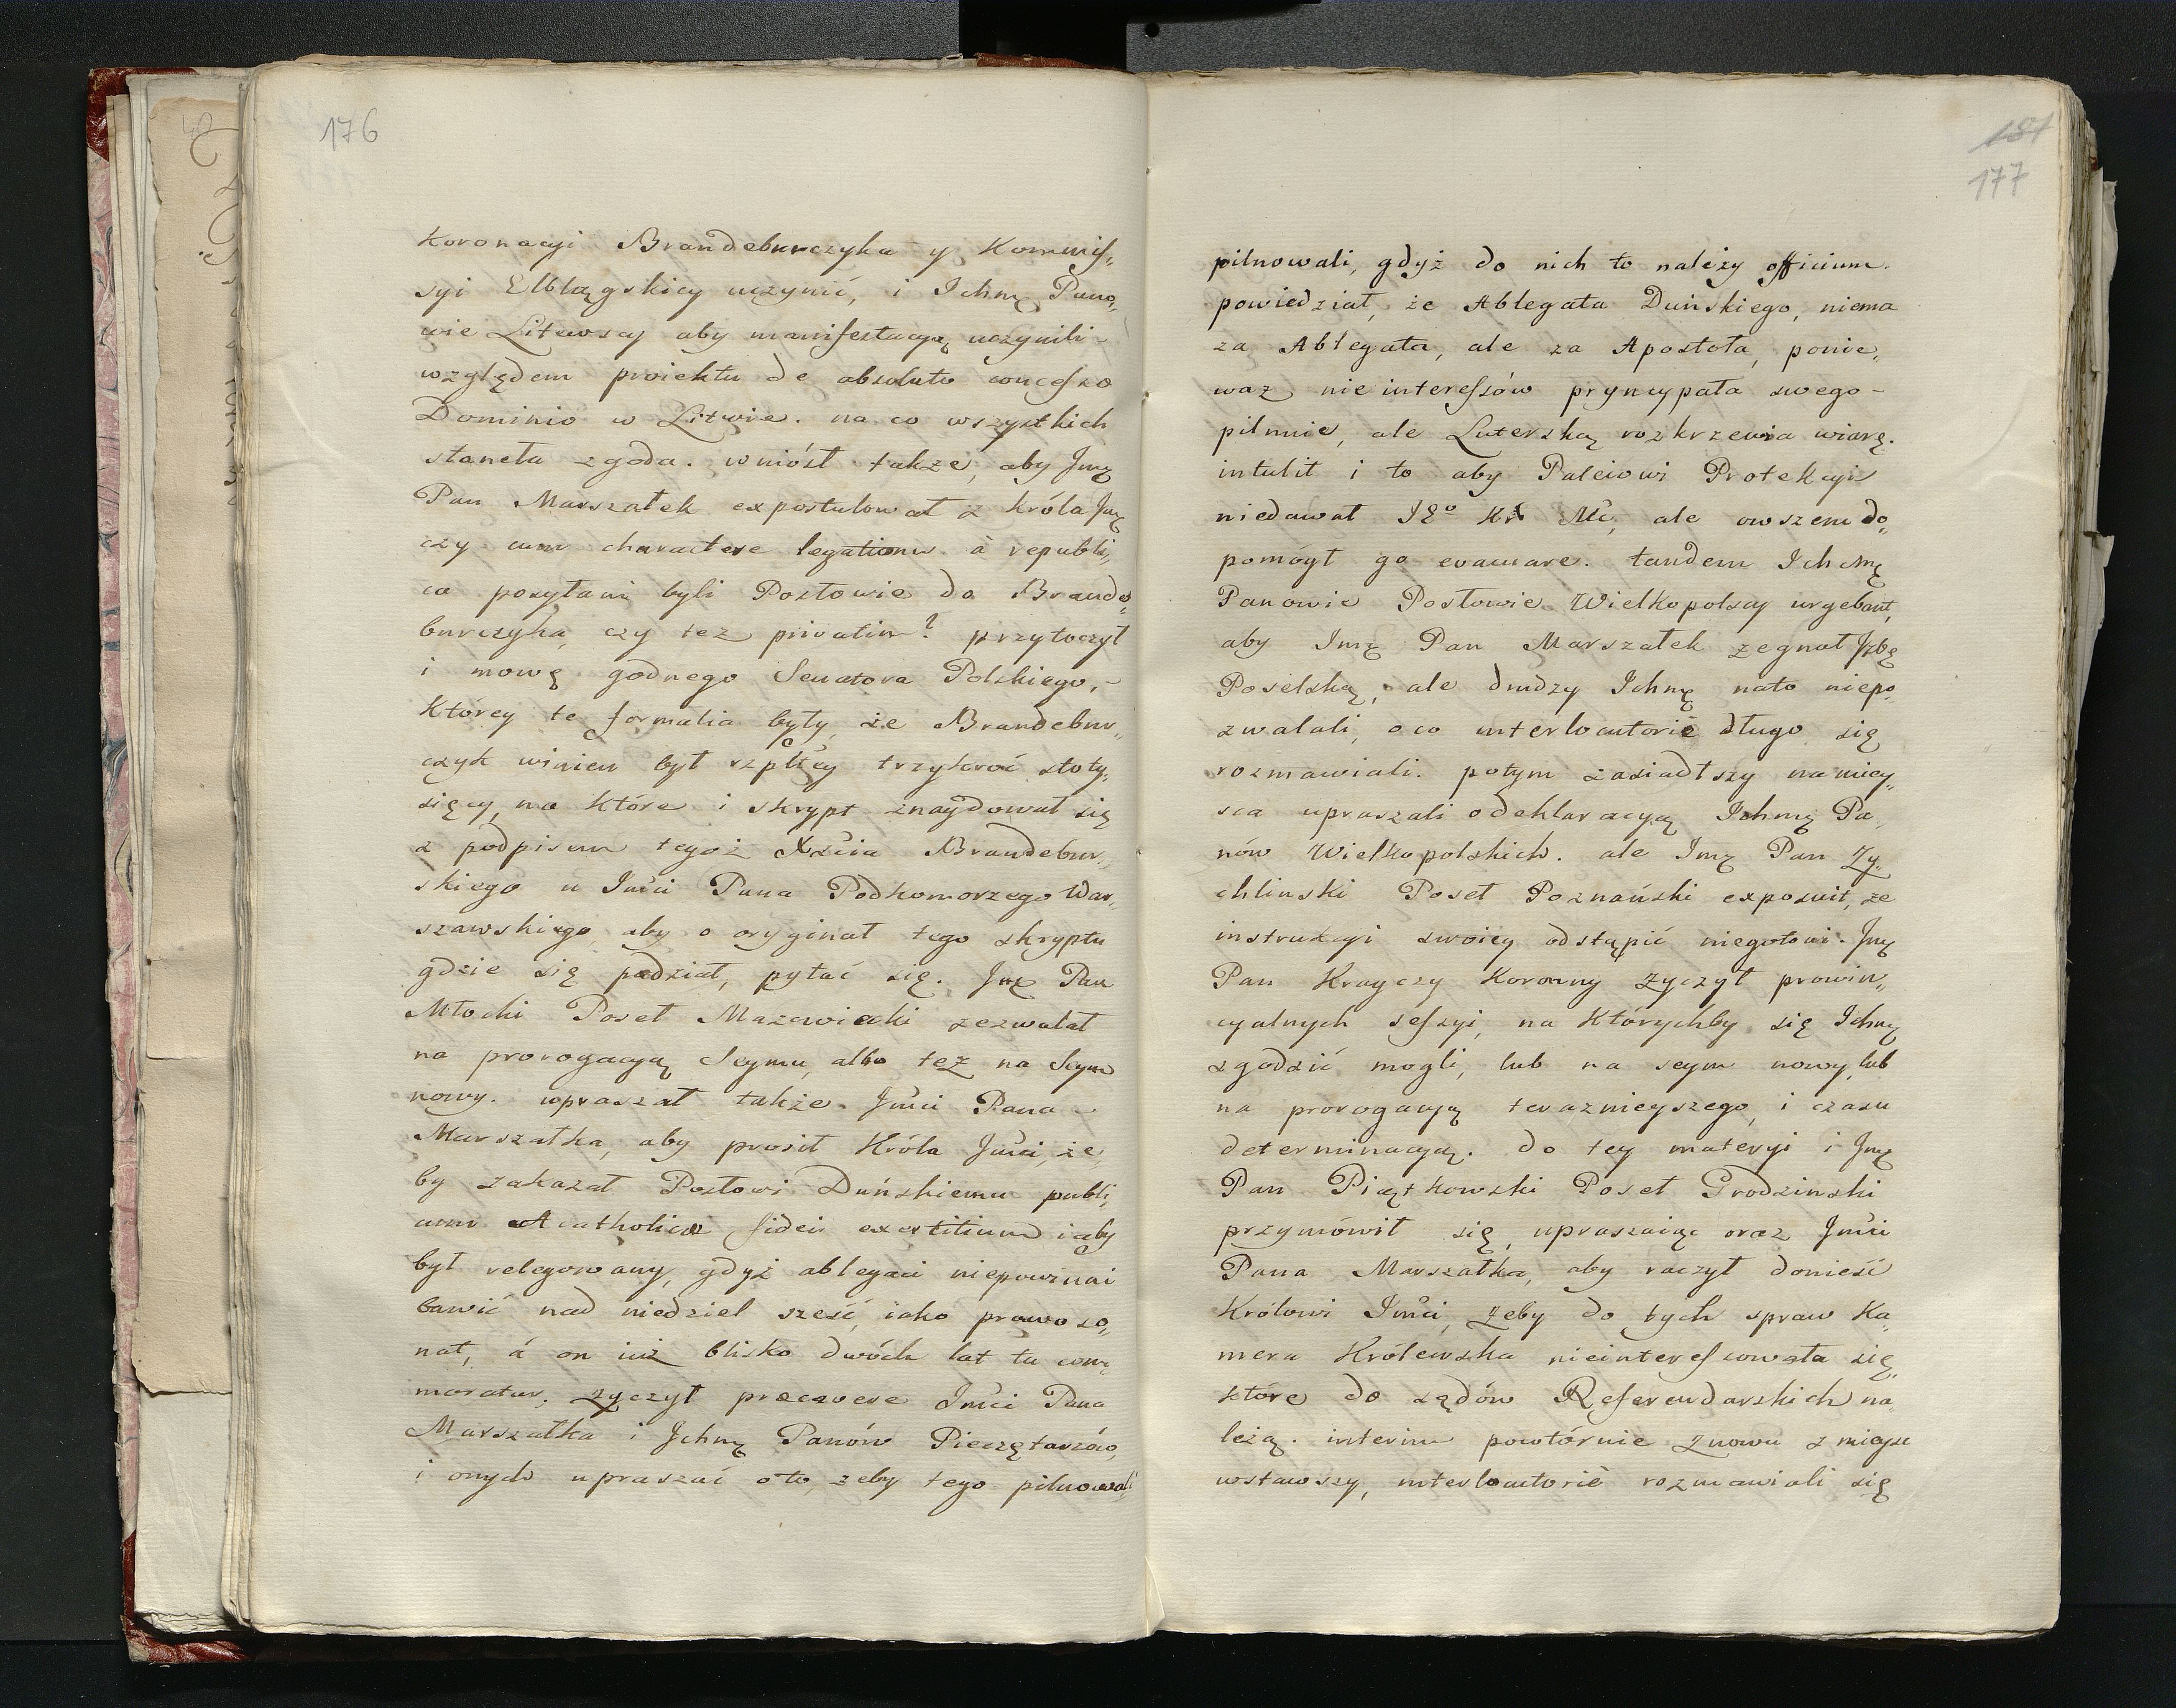 176
koronacyi Brandeburczyka y Kommis„
syi Elblągskiey uczynić, i Ichmę Pano„
wie Litewscy aby manifestacyą uczynili –
względem proiektu de absoluto concesso
Dominio w Litwie. na co wszystkich
staneła zgoda. wniósł także, aby Jmę
Pan Marszałek expostulował z króla Jmę
czy cum charactere legationis à republi„
ca posyłani byli Posłowie do Brande„
burczyka, czy też privatim? przytoczył
i mowę godnego Senatora Polskiego, –
którey te formalia były, że Brandebur„
czyk winien był rzpltey trzykroć stoty„
sięcy, na które i skrypt znaydował się
z podpisem tegoż Xźcia Brandebur„
skiego u Jmci Pana Podkomorzego War„
szawskiego, aby o oryginał tego skryptu
gdzie się podział, pytać się. Jmę Pan
Młocki Poseł Mazowiecki zezwalał
na prorogacyą Seymu, albo też na Seym
nowy. upraszał także Jmci Pana –
Marszałka, aby prosił Króla Jmci, że„
by zakazał Posłowi Duńskiemu publi„
cum Acatholicae fidei exertitium i aby
był relegowany, gdyż ablegaci niepowinni
bawić nad niedziel sześć, iako prawo so„
nat, á on iuż blisko dwóch lat tu com„
moratur, życzył praecavere Jmci Pana
Marszałka i Jchmę Panów Pieczętarzów,
i onych upraszać o to, żeby tego pilnowali
181
177
pilnowali, gdyż do nich to należy officium.
powiedział, że Ablegata Duńskiego, niema
za Ablegata, ale za Apostoła, ponie„
waż nie interessów pryncypała swego –
pilnuie, ale Luterską rozkrzewia wiarę.
intulit i to aby Paleiowi Protekcyi
niedawał Jgo Kr Mć, ale owszem do„
pomógł go evacuare. tandem Ichmę
Panowie Posłowie Wielkopolscy urgebant,
aby Jmę Pan Marszałek żegnał Jzbę
Poselską, ale drudzy Ichmę nato niepo„
zwalali, o co interlocutoriè długo się
rozmawiali. potym zasiadłszy na miey„
sca upraszali o deklaracyą Ichmę Pa„
nów Wielkopolskich. ale Jmę Pan Zy„
chlinski Poseł Poznański exposuit, że
instrukcyi swoiey odstąpić niegotowi. Jmę
Pan Krayczy Koronny życzył prowin„
cyalnych sessyi, na którychby się Ichmę
zgodzić mogli, lub na seym nowy, lub
na prorogacyą teraznieyszego, i czasu
determinacyą. do tey materyi i Jmę
Pan Piątkowski Poseł Grodzinski
przymówił się, upraszaiąc oraz Jmci
Pana Marszałka, aby raczył donieść
Królowi Jmci, żeby do tych spraw Ka„
mera Królewska nieinteressowała się,
które do sądów Referendarskich na„
leżą. interim powtórnie znowu z mieysc
wstawszy, interlocutoriè rozmawiali się